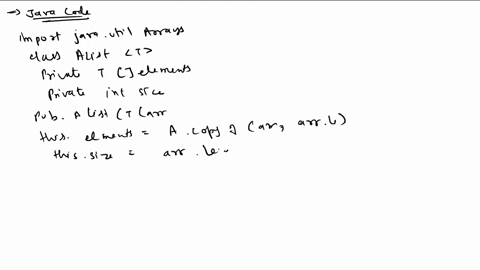 → Java Code
import java.util Arrays
class AList <T>
Private T [] elements
Private int size
Pub. A List (T [arr
this. elements = A.copy of (arr, arr.L)
this.size = arr .le..